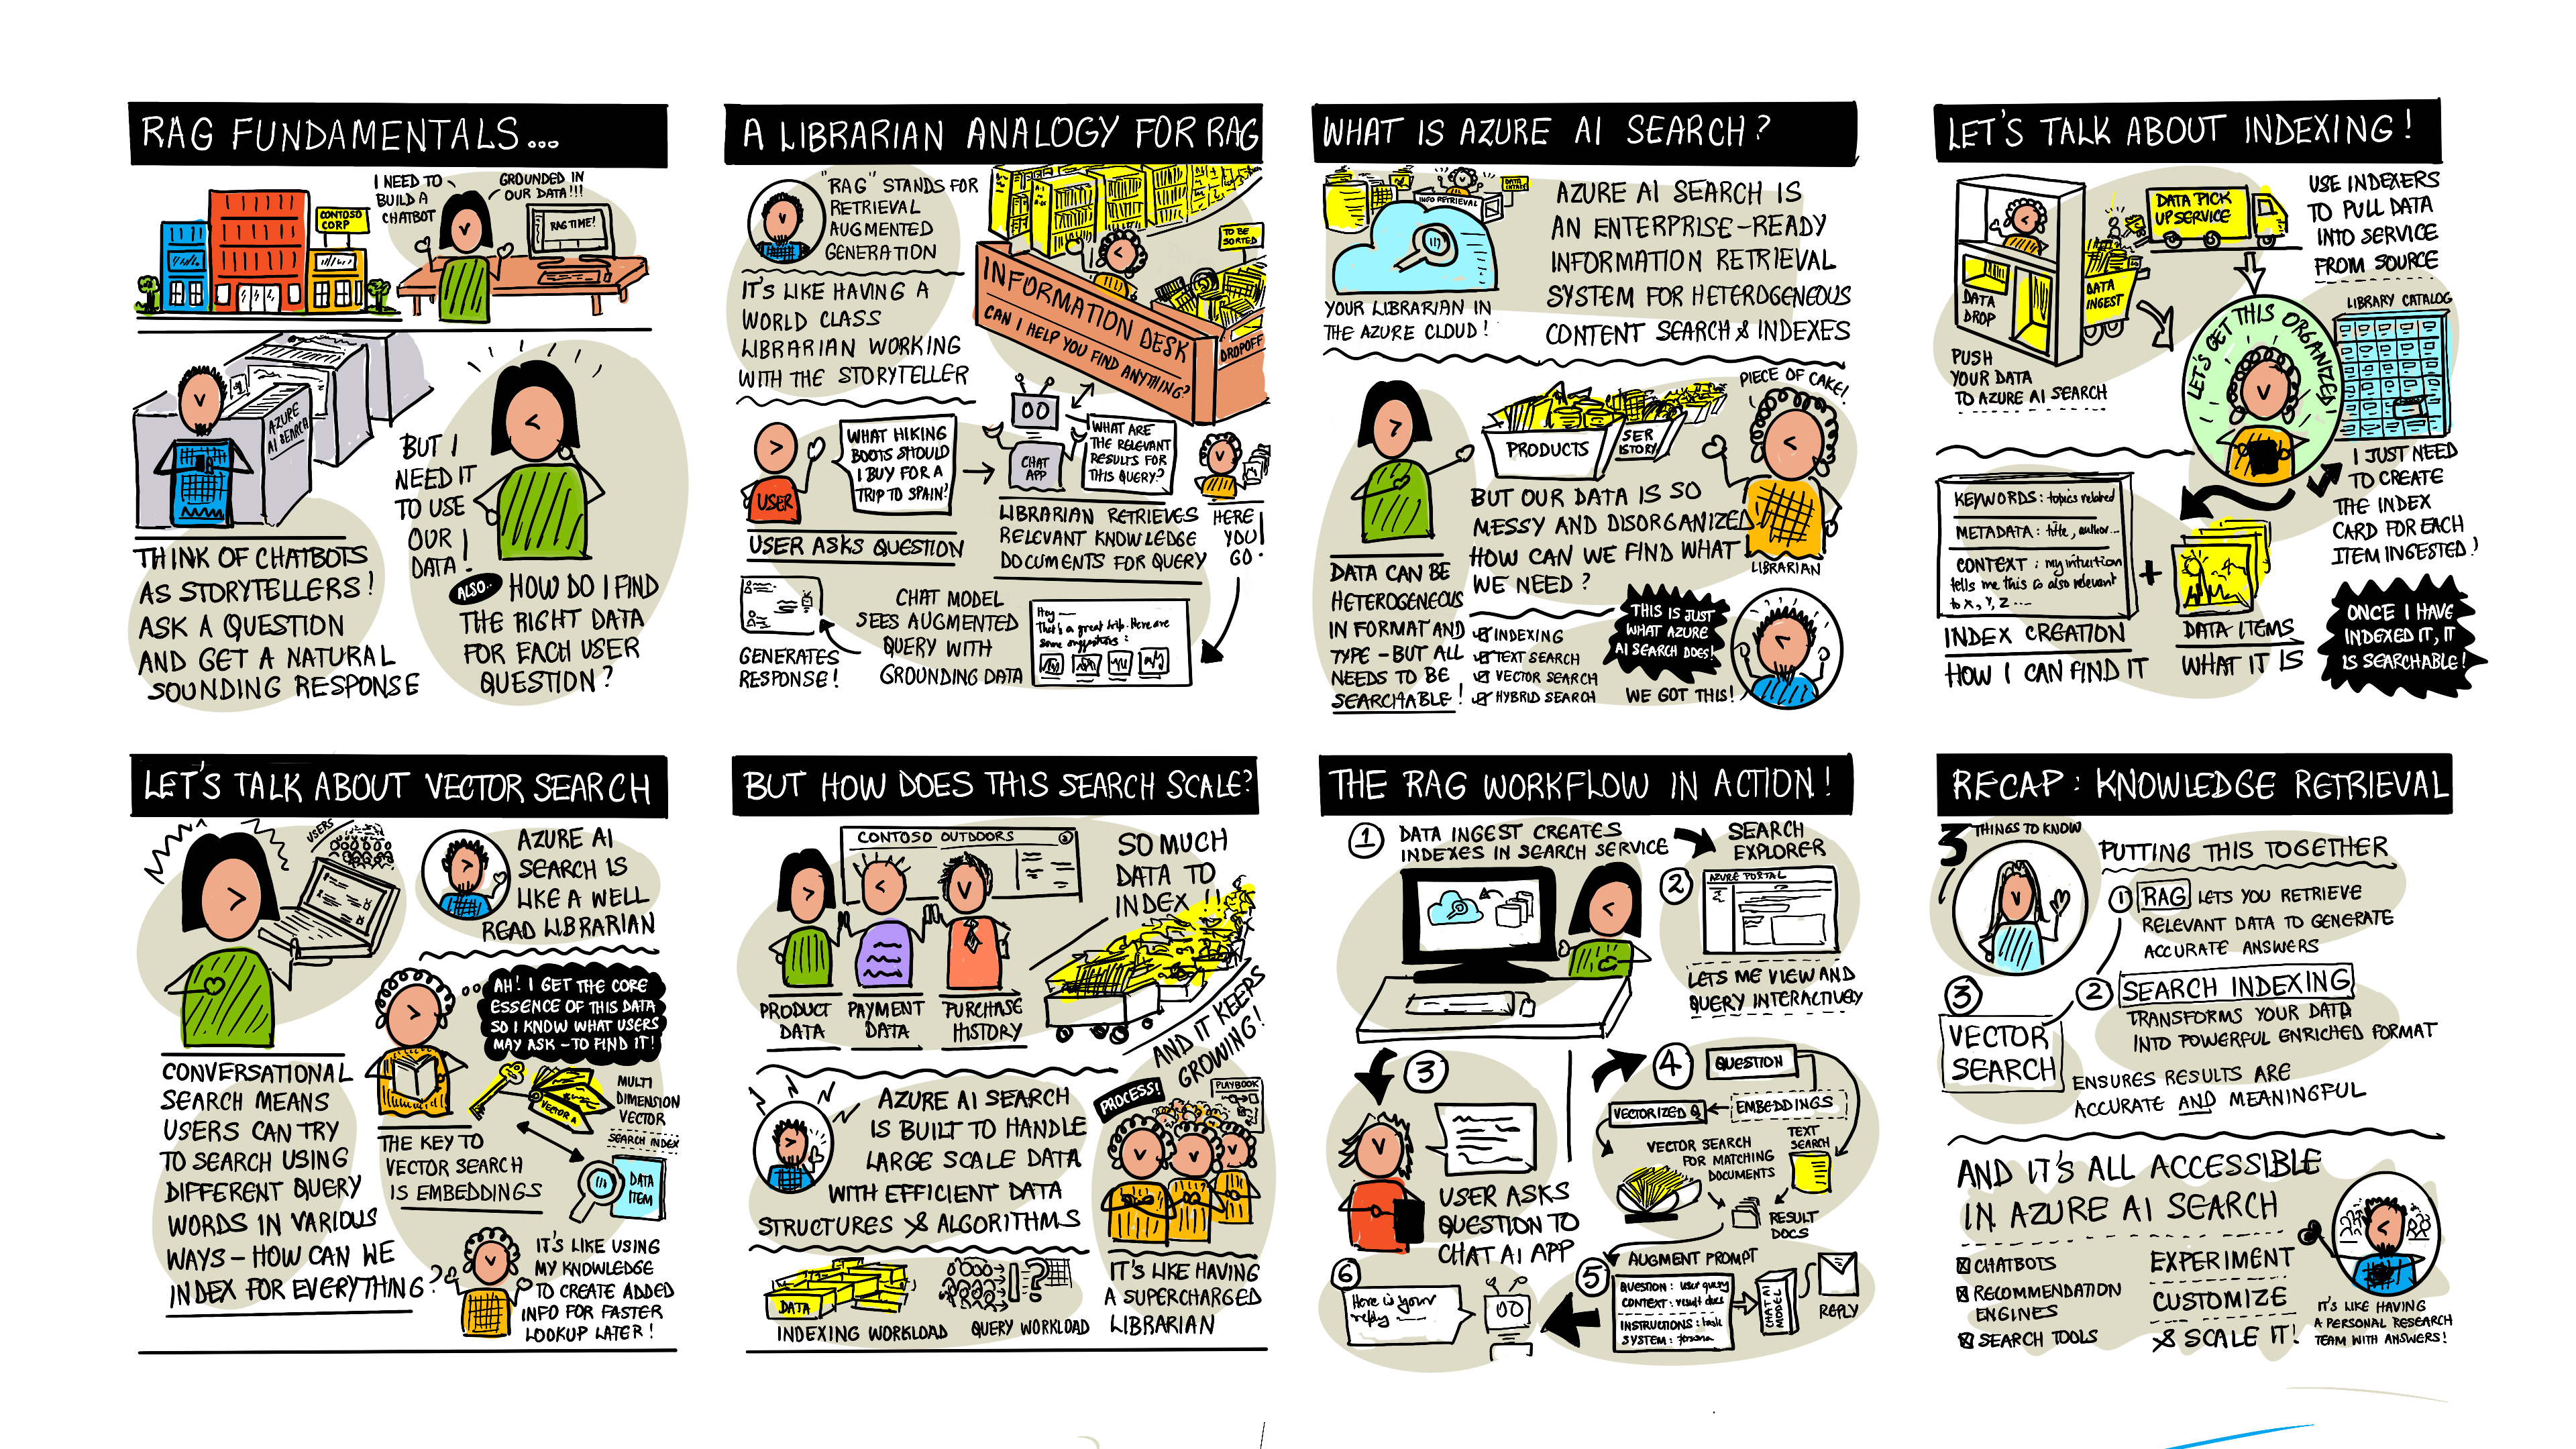 RAG FUNDAMENTALS...
I NEED TO
BUILD A
CHATBOT
GROUNDED IN
OUR DATA!!!
CONTOSO
CORP
RAG TIME!
AZURE
AI SEARCH
THINK OF CHATBOTS
AS STORYTELLERS!
ASK A QUESTION
AND GET A NATURAL
SOUNDING RESPONSE
BUT I
NEED IT
TO USE
OUR
DATA!
ALSO.. HOW DO I FIND
THE RIGHT DATA
FOR EACH USER
QUESTION?
A LIBRARIAN ANALOGY FOR RAG
"RAG" STANDS FOR
RETRIEVAL
AUGMENTED
GENERATION
IT'S LIKE HAVING A
WORLD CLASS
LIBRARIAN WORKING
WITH THE STORYTELLER
TO BE
SORTED
INFORMATION DESK
CAN I HELP YOU FIND ANYTHING?
DROPOFF
USER
WHAT HIKING
BOOTS SHOULD
I BUY FOR A
TRIP TO SPAIN?
USER ASKS QUESTION
CHAT
APP
WHAT ARE
THE RELEVANT
RESULTS FOR
THIS QUERY?
LIBRARIAN RETRIEVES
RELEVANT KNOWLEDGE
DOCUMENTS FOR QUERY
HERE
YOU
GO!
GENERATES
RESPONSE!
CHAT MODEL
SEES AUGMENTED
QUERY WITH
GROUNDING DATA
Hey
That's a great trip. Here are
some suggestions:
WHAT IS AZURE AI SEARCH?
INFO RETRIEVAL
YOUR LIBRARIAN IN
THE AZURE CLOUD!
AZURE AI SEARCH IS
AN ENTERPRISE-READY
INFORMATION RETRIEVAL
SYSTEM FOR HETEROGENEOUS
CONTENT SEARCH & INDEXES
PRODUCTS
PIECE OF CAKE!
DATA CAN BE
HETEROGENEOUS
IN FORMAT AND
TYPE - BUT ALL
NEEDS TO BE
SEARCHABLE!
BUT OUR DATA IS SO
MESSY AND DISORGANIZED
HOW CAN WE FIND WHAT
WE NEED?
LIBRARIAN
INDEXING
TEXT SEARCH
VECTOR SEARCH
HYBRID SEARCH
THIS IS JUST
WHAT AZURE
AI SEARCH DOES!
WE GOT THIS!
LET'S TALK ABOUT INDEXING!
DATA
DROP
DATA PICK
UP SERVICE
DATA
INGEST
USE INDEXERS
TO PULL DATA
INTO SERVICE
FROM SOURCE
PUSH
YOUR DATA
TO AZURE AI SEARCH
LET'S GET THIS ORGANIZED!
LIBRARY CATALOG
KEYWORDS: topics related
METADATA: title, author...
CONTEXT: my intuition
tells me this is also relevant
to X, Y, Z ...
+
INDEX CREATION
HOW I CAN FIND IT
DATA ITEMS
WHAT IT IS
I JUST NEED
TO CREATE
THE INDEX
CARD FOR EACH
ITEM INGESTED!
ONCE I HAVE
INDEXED IT, IT
IS SEARCHABLE!
LET'S TALK ABOUT VECTOR SEARCH
USERS
AZURE AI
SEARCH IS
LIKE A WELL
READ LIBRARIAN
CONVERSATIONAL
SEARCH MEANS
USERS CAN TRY
TO SEARCH USING
DIFFERENT QUERY
WORDS IN VARIOUS
WAYS - HOW CAN WE
INDEX FOR EVERYTHING?
AH! I GET THE CORE
ESSENCE OF THIS DATA
SO I KNOW WHAT USERS
MAY ASK - TO FIND IT!
VECTOR A
MULTI
DIMENSION
VECTOR
SEARCH INDEX
THE KEY TO
VECTOR SEARCH
IS EMBEDDINGS
DATA
ITEM
IT'S LIKE USING
MY KNOWLEDGE
TO CREATE ADDED
INFO FOR FASTER
LOOKUP LATER!
BUT HOW DOES THIS SEARCH SCALE?
CONTOSO OUTDOORS
PRODUCT
DATA
PAYMENT
DATA
PURCHASE
HISTORY
SO MUCH
DATA TO
INDEX!!
AND IT KEEPS
GROWING!
AZURE AI SEARCH
IS BUILT TO HANDLE
LARGE SCALE DATA
WITH EFFICIENT DATA
STRUCTURES & ALGORITHMS
PROCESS!
PLAYBOOK
DATA
INDEXING WORKLOAD
QUERY WORKLOAD
IT'S LIKE HAVING
A SUPERCHARGED
LIBRARIAN
THE RAG WORKFLOW IN ACTION!
1
DATA INGEST CREATES
INDEXES IN SEARCH SERVICE
SEARCH
EXPLORER
2
AZURE PORTAL
LETS ME VIEW AND
QUERY INTERACTIVELY
3
USER ASKS
QUESTION TO
CHAT AI APP
4
QUESTION
VECTORIZED Q
EMBEDDINGS
VECTOR SEARCH
FOR MATCHING
DOCUMENTS
TEXT
SEARCH
RESULT
DOCS
5
AUGMENT PROMPT
QUESTION: user query
CONTEXT: result docs
INSTRUCTIONS: task
SYSTEM: persona
CHAT
MODEL
REPLY
6
Here is your
reply
RECAP: KNOWLEDGE RETRIEVAL
3 THINGS TO KNOW
PUTTING THIS TOGETHER
1 RAG LETS YOU RETRIEVE
RELEVANT DATA TO GENERATE
ACCURATE ANSWERS
2 SEARCH INDEXING
TRANSFORMS YOUR DATA
INTO POWERFUL ENRICHED FORMAT
3
VECTOR
SEARCH
ENSURES RESULTS ARE
ACCURATE AND MEANINGFUL
AND IT'S ALL ACCESSIBLE
IN AZURE AI SEARCH
CHATBOTS
RECOMMENDATION
ENGINES
SEARCH TOOLS
EXPERIMENT
CUSTOMIZE
& SCALE IT!
IT'S LIKE HAVING
A PERSONAL RESEARCH
TEAM WITH ANSWERS!